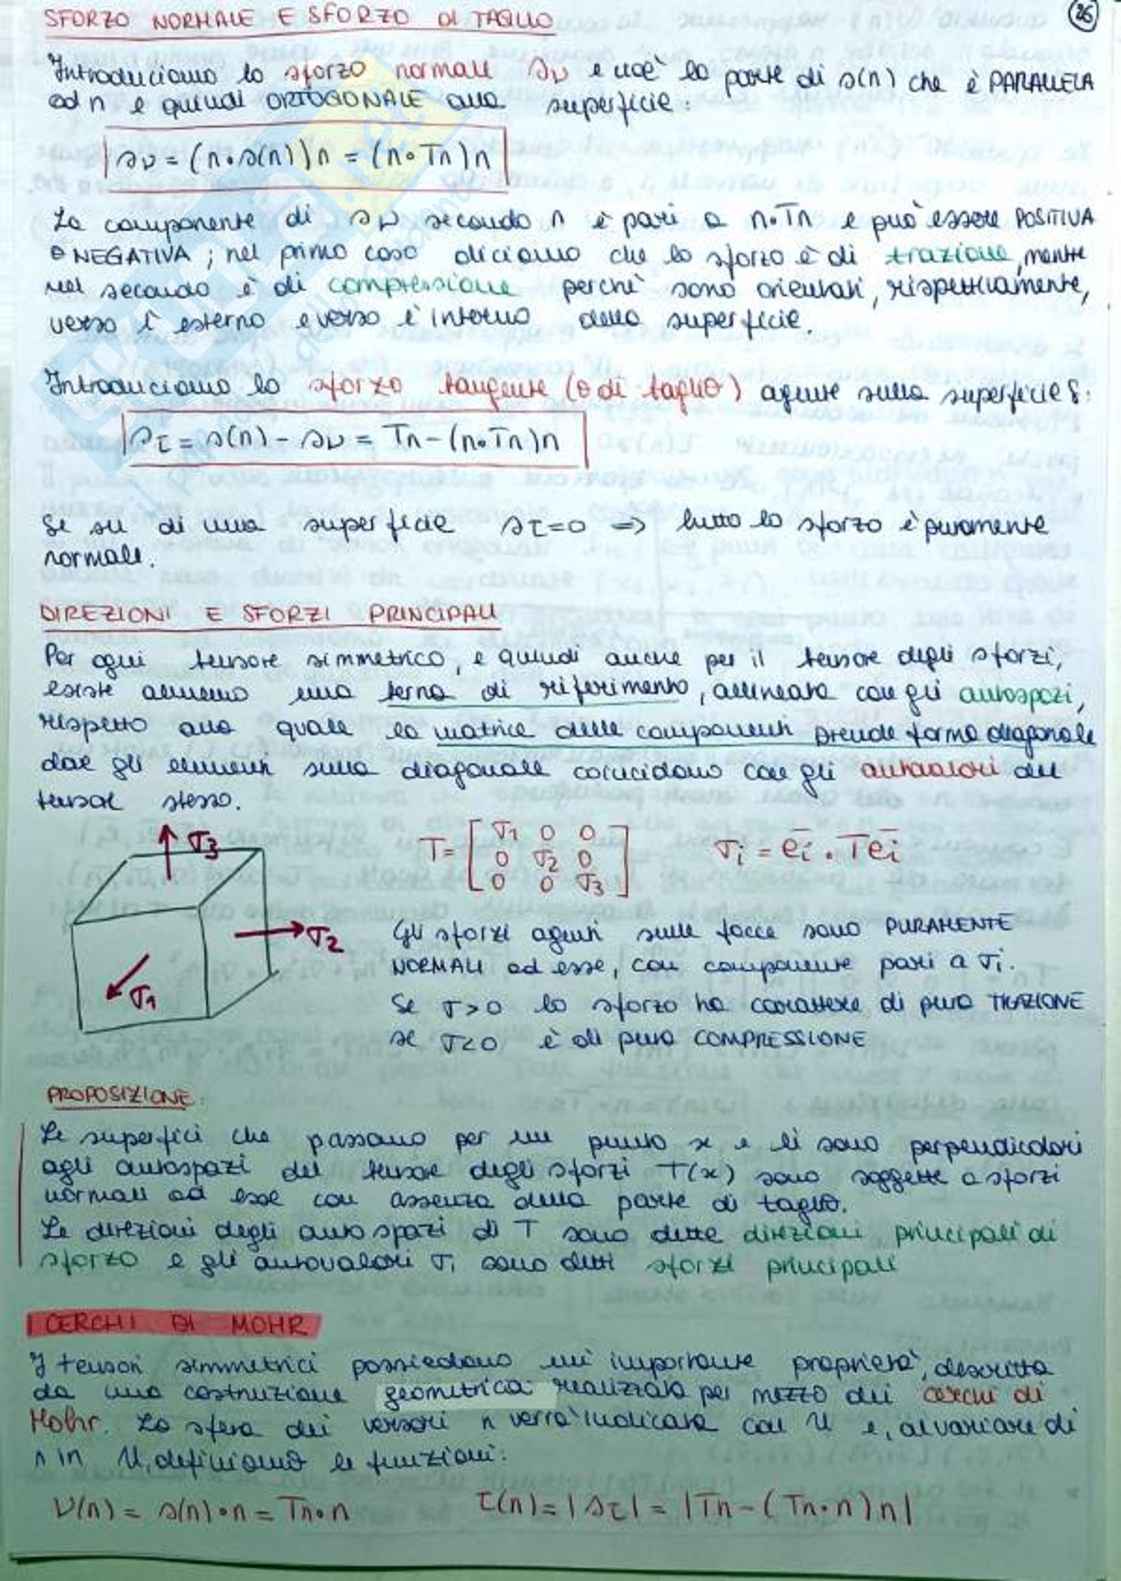 SFORZO NORMALE E SFORZO DI TAGLIO
26
Introduciamo lo sforzo normale sν e cioè la parte di s(n) che è PARALLELA
ad n e quindi ORTOGONALE alla superficie:
sν = (n•s(n))n = (n•Tn)n
La componente di sν secondo n è pari a n•Tn e può essere POSITIVA
o NEGATIVA ; nel primo caso diciamo che lo sforzo è di trazione, mentre
nel secondo è di compressione perchè sono orientati, rispettivamente,
verso l'esterno e verso l'interno della superficie.
Introduciamo lo sforzo tangente (o di taglio) agente sulla superficie S:
sτ = s(n) - sν = Tn-(n•Tn)n
Se su di una superficie sτ=0 => tutto lo sforzo è puramente
normale.
DIREZIONI E SFORZI PRINCIPALI
Per ogni tensore simmetrico, e quindi anche per il tensore degli sforzi,
esiste almeno una terna di riferimento, allineata con gli autospazi,
rispetto alla quale la matrice delle componenti prende forma diagonale
dove gli elementi sulla diagonale coincidono con gli autovalori del
tensore stesso.
σ3
σ2
σ1
T= [σ1 0 0
0 σ2 0
0 0 σ3]
σi = ēi • Tēi
Gli sforzi agenti sulle facce sono PURAMENTE
NORMALI ad esse, con componente pari a σi.
Se σ>0 lo sforzo ha carattere di pura TRAZIONE
se σ<0 è di pura COMPRESSIONE
PROPOSIZIONE:
Le superfici che passano per un punto x e lì sono perpendicolari
agli autospazi del tensore degli sforzi T(x) sono soggette a sforzi
normali ad esse con assenza della parte di taglio.
Le direzioni degli autospazi di T sono dette direzioni principali di
sforzo e gli autovalori σi sono detti sforzi principali
CERCHI DI MOHR
I tensori simmetrici possiedono un'importante proprietà, descritta
da una costruzione geometrica realizzata per mezzo dei cerchi di
Mohr. La sfera dei versori n verrà indicata con U e, al variare di
n in U, definiamo le funzioni:
ν(n) = s(n)•n = Tn•n
τ(n) = |sτ| = |Tn-(Tn•n)n|